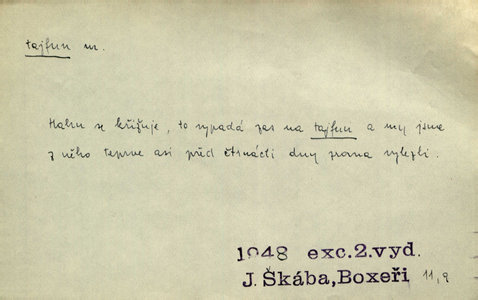 tajfun m.
Hahn se křižuje, to vypadá zas na tajfun a my jsme
z něho teprve asi před čtrnácti dny zrovna vylezli.
1948 exc.2.vyd.
J. Škába, Boxeři 11,9